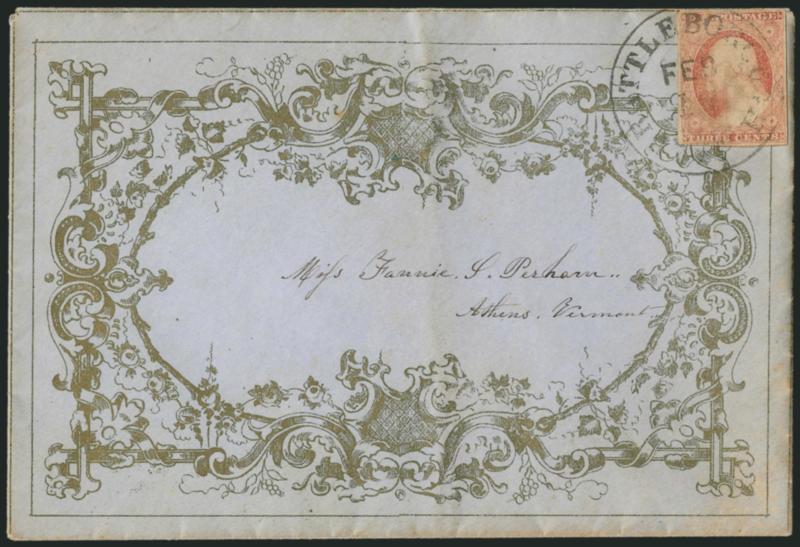 POSTAGE
THREE CENTS
FEB
Miſs Fannie. S. Perham..
Athens. Vermont.